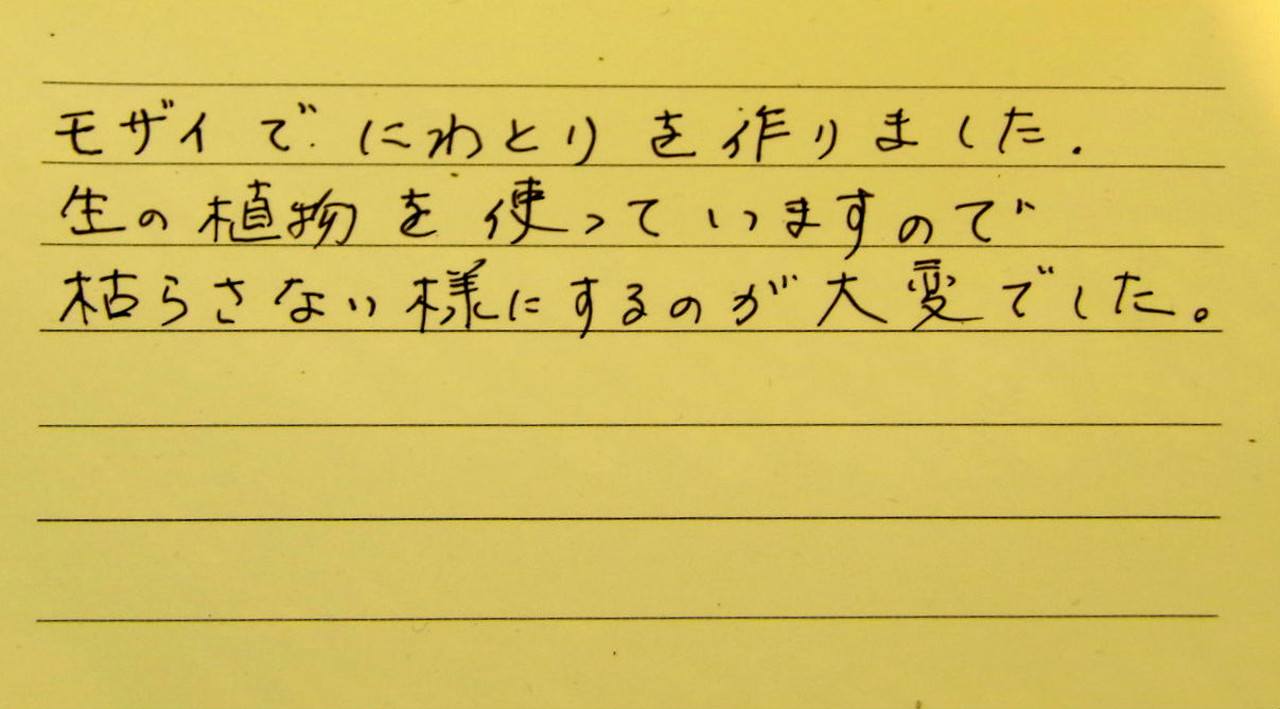 モザイで にわとりを作りました.
生の植物を使っていますので
枯らさない様にするのが大変でした。